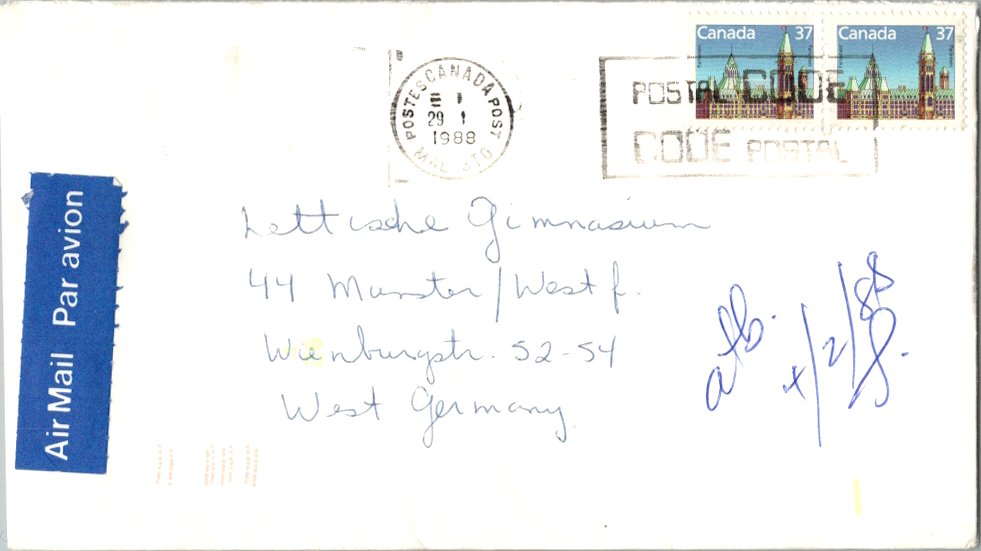 Canada 37 Canada 37
POSTES CANADA POST
29 1
1988
POSTAL CODE
CODE POSTAL
Air Mail Par avion
Lettische Gimnasium
44 Munster/Westf.
Wienburgstr. 52-54
West Germany
atb.